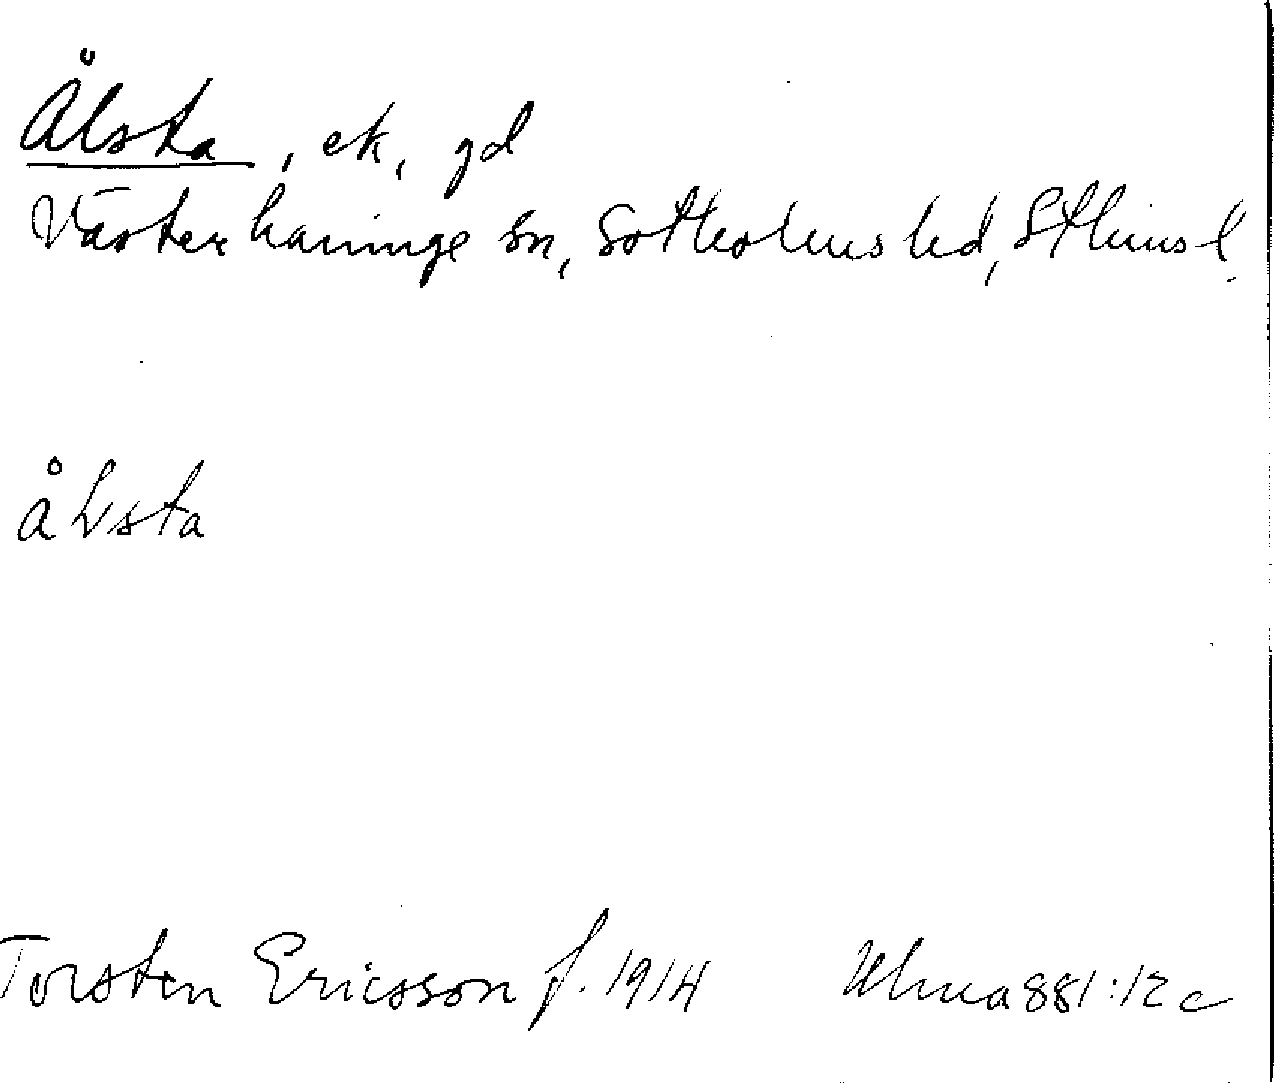 Ålsta, ek, gd
Västerhaninge sn, Sotholms hd, Sthlms l.
ålvsta
Torsten Ericsson f. 1914 Ulma 881:12 c